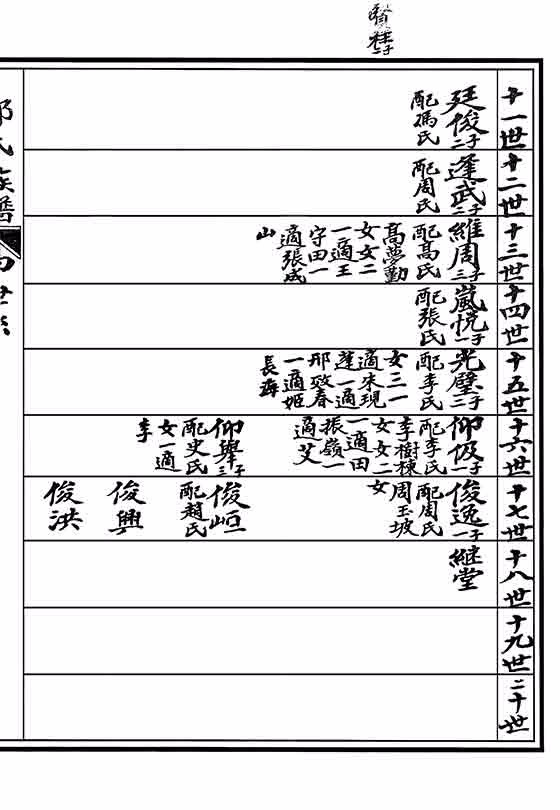 賢柱二子
十一世
廷俊二子
配馮氏
十二世
逢武二子
配周氏
十三世
維周三子
配髙氏
髙夢勤
女女二
一適王
守田一
適張成
山
十四世
嵐悦一子
配張氏
十五世
光璧二子
配李氏
女三一
適宋現
蓬一適
邢致春
一適姬
長海
十六世
仰伋一子
配李氏
李樹棟
女女二
一適田
振嶺一
適艾
仰舉三子
配史氏
女一適
李
十七世
俊逸一子
配周氏
周玉坡
女
俊峘
配趙氏
俊興
俊洪
十八世
継堂
十九世
二十世
氏族譜